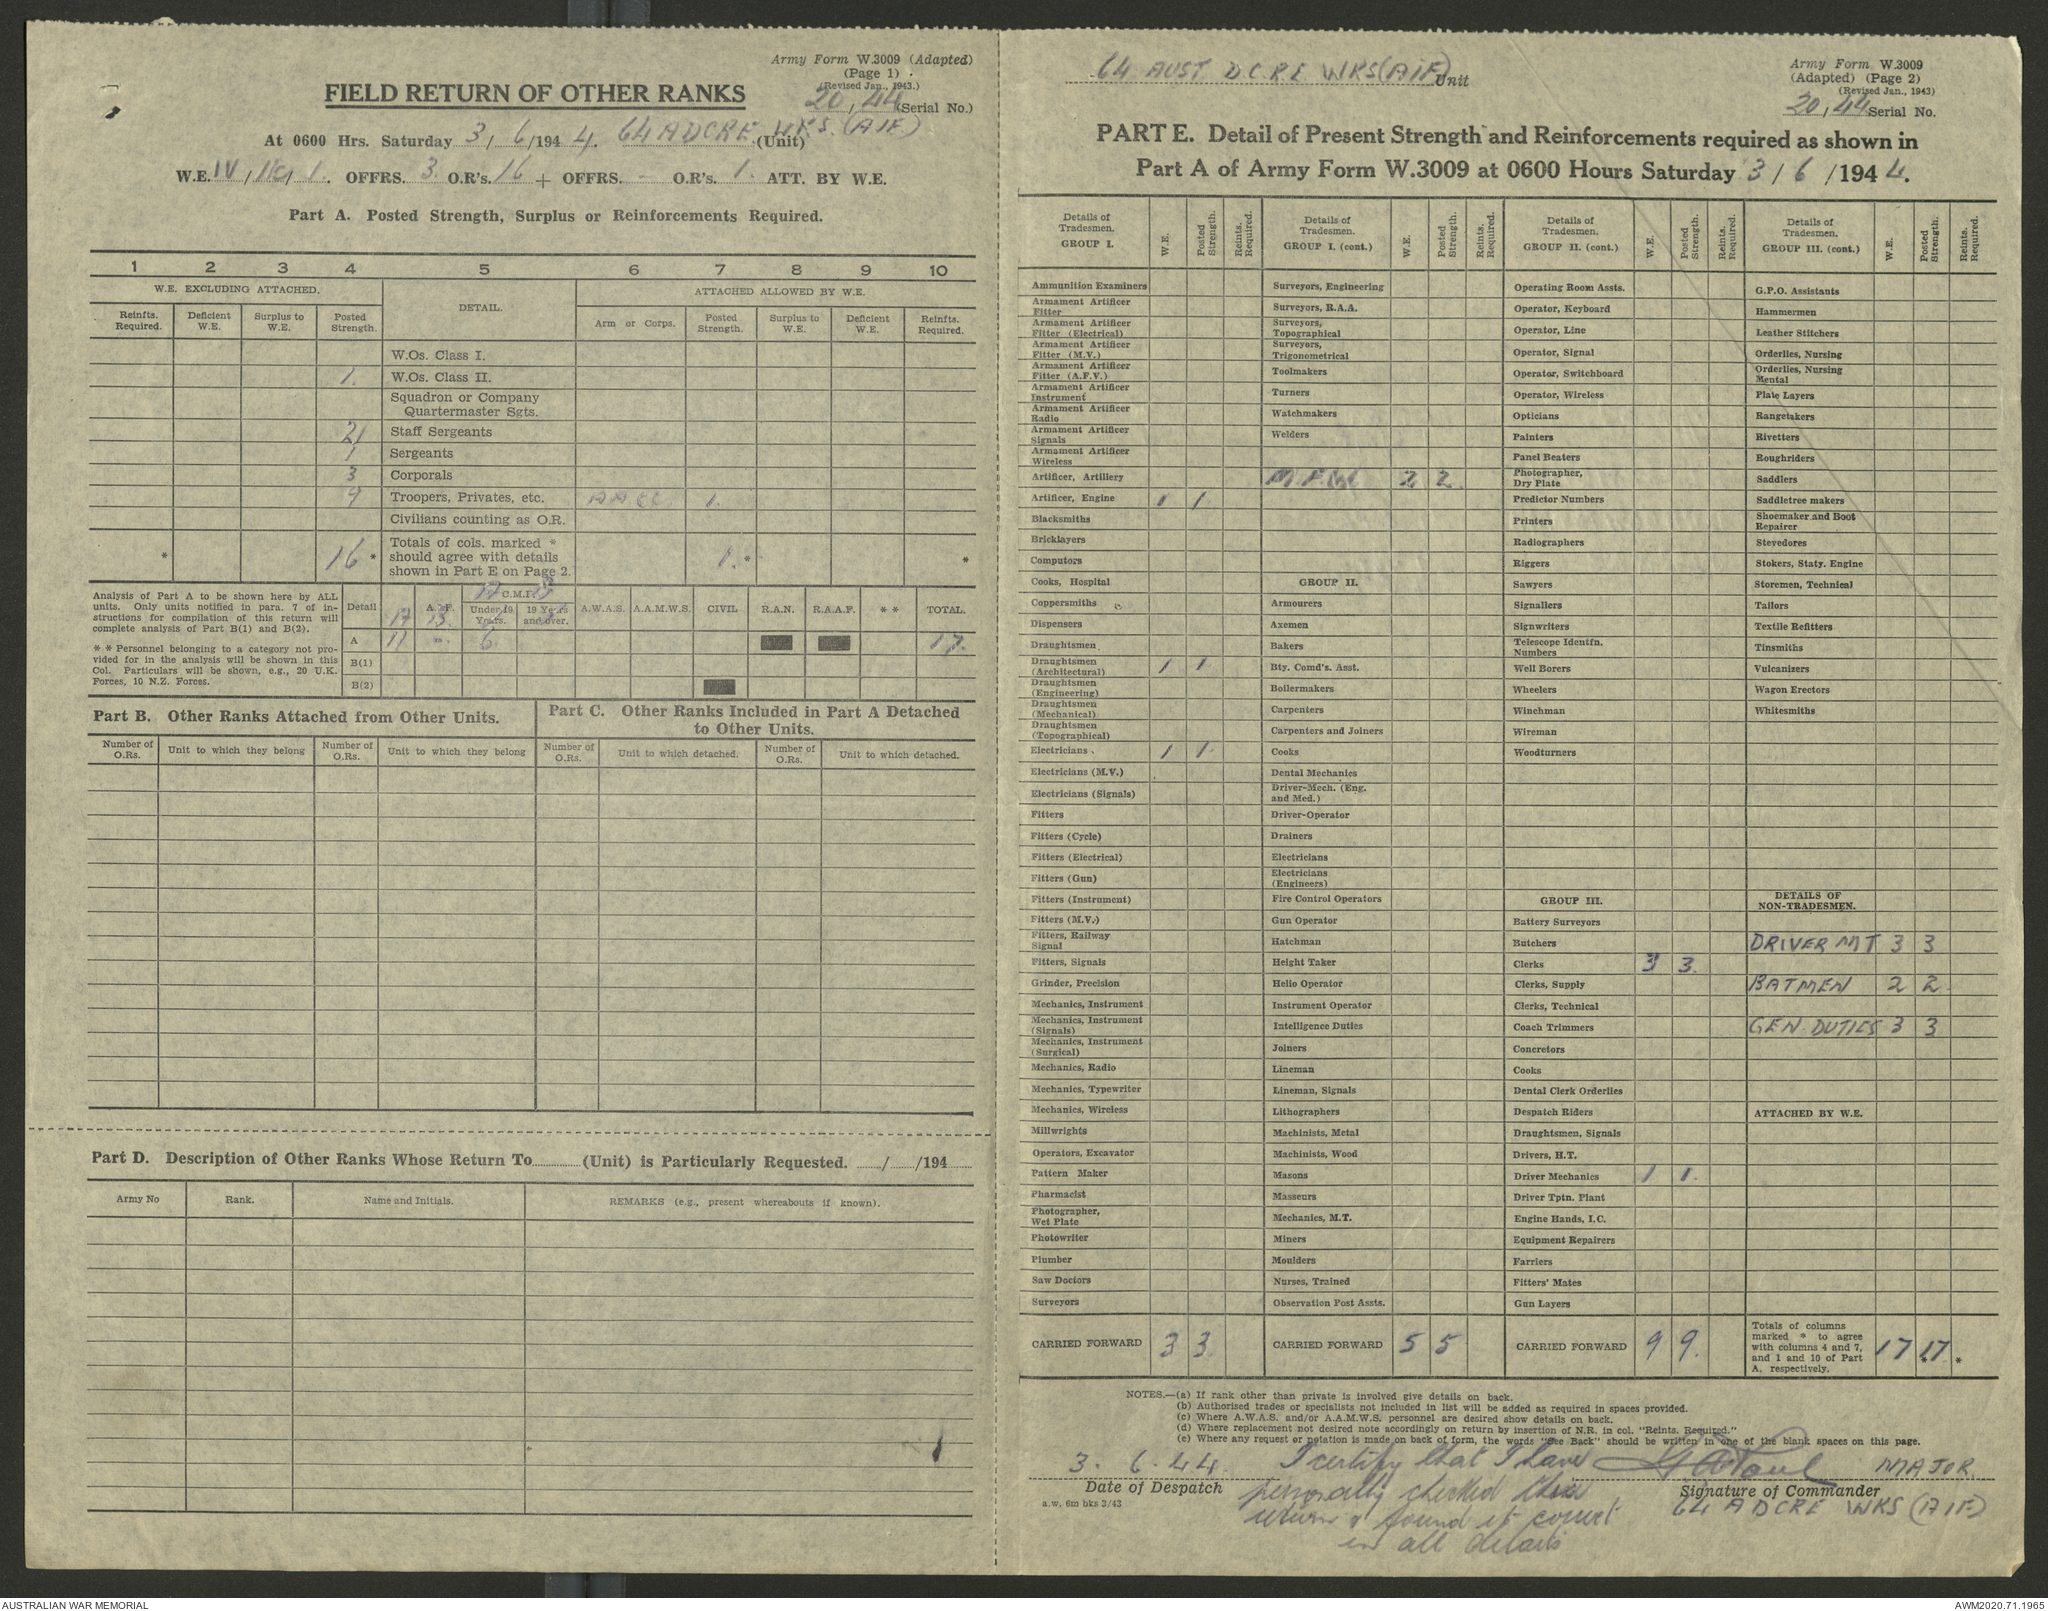 Army Form W.3009 (Adapted)
(Page 1)
(Revised Jan., 1943.)
FIELD RETURN OF OTHER RANKS
20, 44 (Serial No.)
At 0600 Hrs. Saturday 3, 6/194 4. 64 A DCRE WKS. (AIF) (Unit)
W.E. IV, , 1. OFFRS. 3. O.R's. 16 + OFFRS. - O.R's. 1. ATT. BY W.E.
Part A. Posted Strength, Surplus or Reinforcements Required.
1 2 3 4 5 6 7 8 9 10
W.E. EXCLUDING ATTACHED. DETAIL. ATTACHED ALLOWED BY W.E.
Reinfts. Required. Deficient W.E. Surplus to W.E. Posted Strength. Arm or Corps. Posted Strength. Surplus to W.E. Deficient W.E. Reinfts. Required.
W.Os. Class I.
1. W.Os. Class II.
Squadron or Company Quartermaster Sgts.
2 Staff Sergeants
1 Sergeants
3 Corporals
9 Troopers, Privates, etc. AACC 1.
Civilians counting as O.R.
* 16 * Totals of cols. marked * should agree with details shown in Part E on Page 2. 1. * *
Analysis of Part A to be shown here by ALL
units. Only units notified in para. 7 of in-
structions for compilation of this return will
complete analysis of Part B(1) and B(2).
* * Personnel belonging to a category not pro-
vided for in the analysis will be shown in this
Col. Particulars will be shown, e.g., 20 U.K.
Forces, 10 N.Z. Forces.
Detail A.I.F. C.M.F. Under 19 Years. 19 Years and over. A.W.A.S. A.A.M.W.S. CIVIL R.A.N. R.A.A.F. * * TOTAL.
A 11 - 6. 17.
B(1)
B(2)
Part B. Other Ranks Attached from Other Units.
Part C. Other Ranks Included in Part A Detached
to Other Units.
Number of O.Rs. Unit to which they belong Number of O.Rs. Unit to which they belong Number of O.Rs. Unit to which detached. Number of O.Rs. Unit to which detached.
Part D. Description of Other Ranks Whose Return To (Unit) is Particularly Requested. / /194
Army No Rank. Name and Initials. REMARKS (e.g., present whereabouts if known).
64 AUST DCRE WKS (AIF) Unit
Army Form W.3009
(Adapted) (Page 2)
(Revised Jan., 1943)
20, 44 Serial No.
PART E. Detail of Present Strength and Reinforcements required as shown in
Part A of Army Form W.3009 at 0600 Hours Saturday 3 / 6 /194 4.
Details of Tradesmen. GROUP I. W.E. Posted Strength. Reints. Required.
Ammunition Examiners
Armament Artificer Fitter
Armament Artificer Fitter (Electrical)
Armament Artificer Fitter (M.V.)
Armament Artificer Fitter (A.F.V.)
Armament Artificer Instrument
Armament Artificer Radio
Armament Artificer Signals
Armament Artificer Wireless
Artificer, Artillery
Artificer, Engine 1 1
Blacksmiths
Bricklayers
Computors
Cooks, Hospital
Coppersmiths
Dispensers
Draughtsmen
Draughtsmen (Architectural) 1 1
Draughtsmen (Engineering)
Draughtsmen (Mechanical)
Draughtsmen (Topographical)
Electricians 1 1
Electricians (M.V.)
Electricians (Signals)
Fitters
Fitters (Cycle)
Fitters (Electrical)
Fitters (Gun)
Fitters (Instrument)
Fitters (M.V.)
Fitters, Railway Signal
Fitters, Signals
Grinder, Precision
Mechanics, Instrument
Mechanics, Instrument (Signals)
Mechanics, Instrument (Surgical)
Mechanics, Radio
Mechanics, Typewriter
Mechanics, Wireless
Millwrights
Operators, Excavator
Pattern Maker
Pharmacist
Photographer, Wet Plate
Photowriter
Plumber
Saw Doctors
Surveyors
CARRIED FORWARD 3 3
Details of Tradesmen. GROUP I. (cont.) W.E. Posted Strength. Reints. Required.
Surveyors, Engineering
Surveyors, R.A.A.
Surveyors, Topographical
Surveyors, Trigonometrical
Toolmakers
Turners
Watchmakers
Welders
M.F.W. 2 2
GROUP II.
Armourers
Axemen
Bakers
Bty. Comd's. Asst.
Boilermakers
Carpenters
Carpenters and Joiners
Cooks
Dental Mechanics
Driver-Mech. (Eng. and Med.)
Driver-Operator
Drainers
Electricians
Electricians (Engineers)
Fire Control Operators
Gun Operator
Hatchman
Height Taker
Helio Operator
Instrument Operator
Intelligence Duties
Joiners
Lineman
Lineman, Signals
Lithographers
Machinists, Metal
Machinists, Wood
Masons
Masseurs
Mechanics, M.T.
Miners
Moulders
Nurses, Trained
Observation Post Assts.
CARRIED FORWARD 5 5
Details of Tradesmen. GROUP II. (cont.) W.E. Posted Strength. Reints. Required.
Operating Room Assts.
Operator, Keyboard
Operator, Line
Operator, Signal
Operator, Switchboard
Operator, Wireless
Opticians
Painters
Panel Beaters
Photographer, Dry Plate
Predictor Numbers
Printers
Radiographers
Riggers
Sawyers
Signallers
Signwriters
Telescope Identfn. Numbers
Well Borers
Wheelers
Winchman
Wireman
Woodturners
GROUP III.
Battery Surveyors
Butchers
Clerks 3 3.
Clerks, Supply
Clerks, Technical
Coach Trimmers
Concretors
Cooks
Dental Clerk Orderlies
Despatch Riders
Draughtsmen, Signals
Drivers, H.T.
Driver Mechanics 1 1.
Driver Tptn. Plant
Engine Hands, I.C.
Equipment Repairers
Farriers
Fitters' Mates
Gun Layers
CARRIED FORWARD 9 9.
Details of Tradesmen. GROUP III. (cont.) W.E. Posted Strength. Reints. Required.
G.P.O. Assistants
Hammermen
Leather Stitchers
Orderlies, Nursing
Orderlies, Nursing Mental
Plate Layers
Rangetakers
Rivetters
Roughriders
Saddlers
Saddletree makers
Shoemaker and Boot Repairer
Stevedores
Stokers, Staty. Engine
Storemen, Technical
Tailors
Textile Refitters
Tinsmiths
Vulcanizers
Wagon Erectors
Whitesmiths
DETAILS OF NON-TRADESMEN.
DRIVER MT 3 3
BATMEN 2 2
GEN. DUTIES 3 3
ATTACHED BY W.E.
Totals of columns marked * to agree with columns 4 and 7, and 1 and 10 of Part A. respectively. 17 17 * *
NOTES.—(a) If rank other than private is involved give details on back.
(b) Authorised trades or specialists not included in list will be added as required in spaces provided.
(c) Where A.W.A.S. and/or A.A.M.W.S. personnel are desired show details on back.
(d) Where replacement not desired note accordingly on return by insertion of N.R. in col. "Reints. Required."
(e) Where any request or notation is made on back of form, the words "See Back" should be written in one of the blank spaces on this page.
3. 6. 44.
Date of Despatch
a.w. 6m bks 3/43
I certify that I have
personally checked this
return & found it correct
in all details
MAJOR
Signature of Commander
64 A DCRE WKS (AIF)
AUSTRALIAN WAR MEMORIAL
AWM2020.71.1965